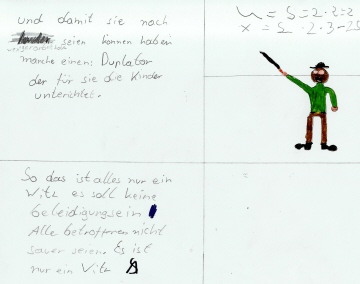 und damit sie noch
seien können haben
manche einen: Duplator
der für sie die Kinder
unterichtet.
So das ist alles nur ein
Witz es soll keine
beleidigung sein
Alle betroffenen nicht
sauer seien. Es ist
nur ein Witz